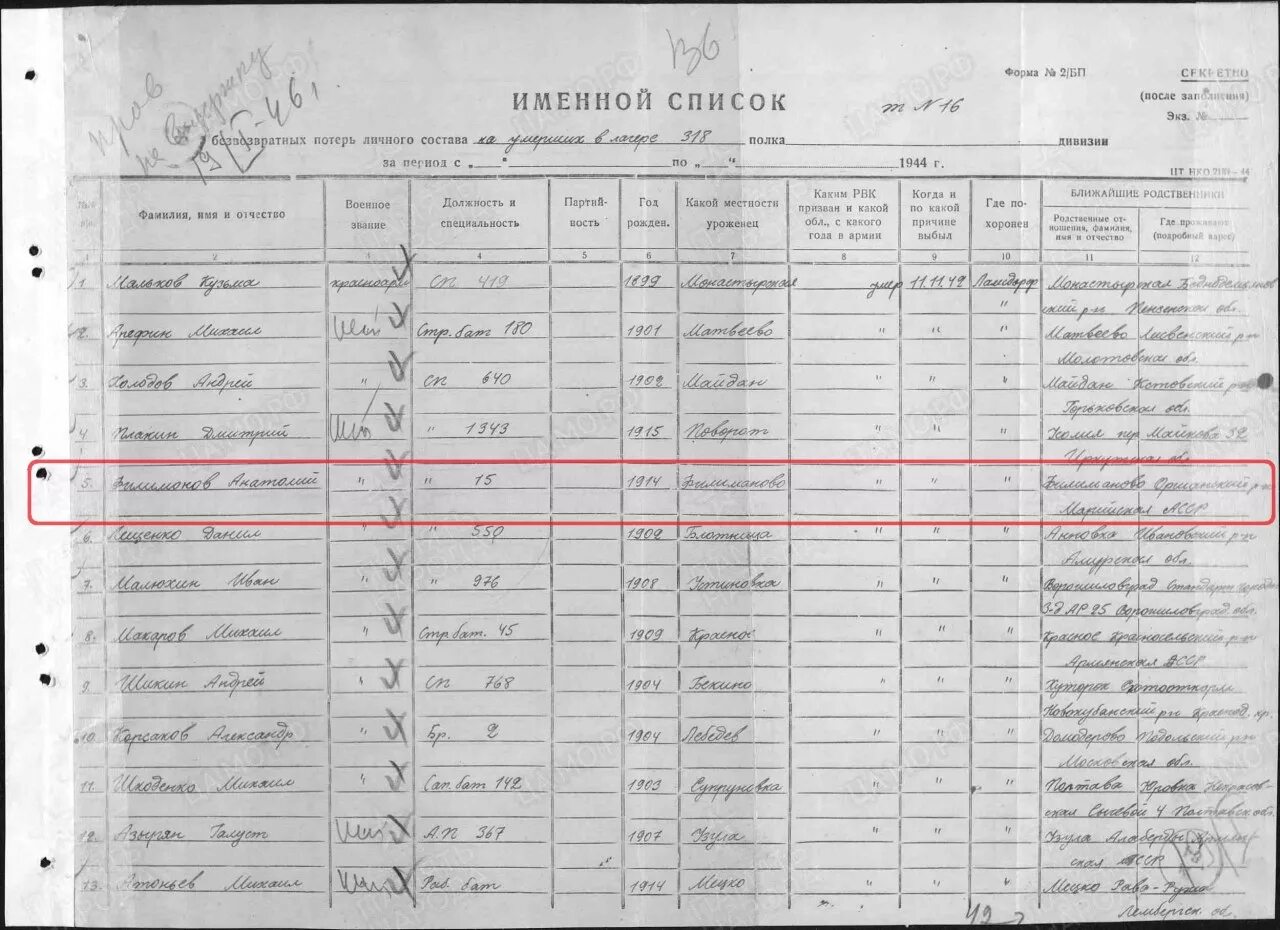 136
пров
19/I-46 г.
Форма № 2/БП
СЕКРЕТНО
(после заполнения)
Экз. №
ИМЕННОЙ СПИСОК
т N 16
безвозвратных потерь личного состава на умерших в лагере 318 полка дивизии
за период с „ “ по „ “ 1944 г.
Фамилия, имя и отчество
Военное звание
Должность и специальность
Партийность
Год рожден.
Какой местности уроженец
Каким РВК призван и какой обл., с какого года в армии
Когда и по какой причине выбыл
Где похоронен
БЛИЖАЙШИЕ РОДСТВЕННИКИ
Родственные отношения, фамилия, имя и отчество
Где проживают (подробный адрес)
1 2 3 4 5 6 7 8 9 10 11 12
1. Мальков Кузьма красноарм СП 419 1899 Монастырская умер 11.11.42 Ламсдорф Монастырская
ский р-н Пензенская обл.
2. Арефин Михаил " Стр. бат 180 1901 Матвеево " " " Матвеево р-н
Молотовская обл.
3. Холодов Андрей " СП 640 1902 Майдан " " " Майдан Кстовский р-н
Горьковская обл.
4 Плакин Дмитрий " 1343 1915 Поворот " " " пер Майкова 32
Иркутская обл.
5. Филимонов Анатолий " " 15 1914 Филиманово " " " Филиманово Оршанский р-н
Марийская АССР
6. Лещенко Данил " " 550 1909 Блотница " " " Анновка Ивановский р-н
Амурская обл.
7. Малюхин Иван " " 976 1908 Устиновка " " " Ворошиловград
З-д АР 25 Ворошиловград. обл.
8. Макаров Михаил " Стр. бат. 45 1909 Красное " " " Красное Красносельский р-н
Армянская ССР
9. Шикин Андрей " СП 768 1904 Бекино " " " Хуторок
Новокубанский р-н Краснод. кр.
10. Корсаков Александр " Бр. 2 1904 Лебедев " " " Домодерово Подольский р-н
Московская обл.
11. Шкоденко Михаил " Сап. бат 142 1903 Супруновка " " " Полтава
4 Полтавск обл.
12. Азырян Галуст А.П 367 1907 Узула " " " Узула
ская ССР
13. Атоньев Михаил Раб. бат 1914 Мецко " " " Мецко Рава-Руска
Лембергск. об.